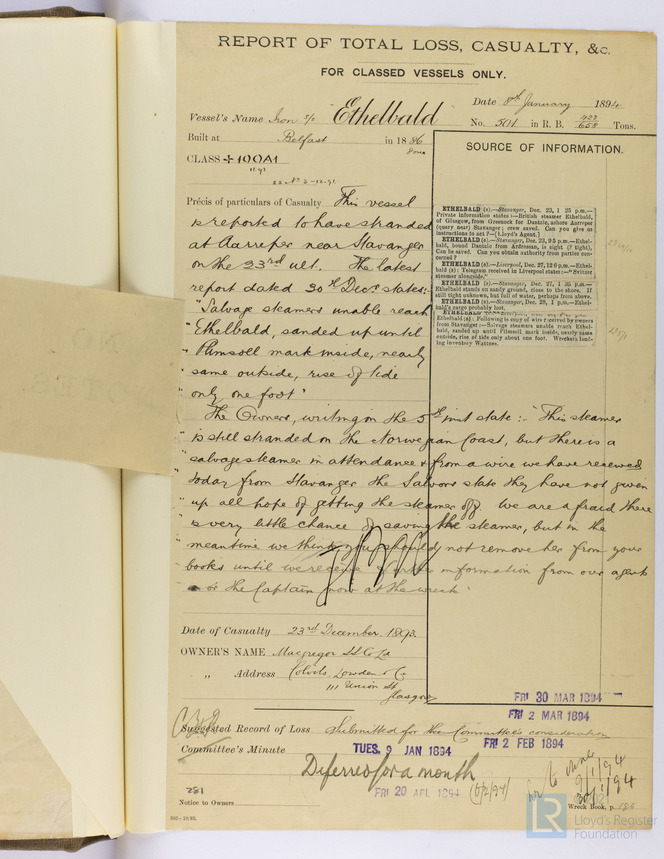 REPORT OF TOTAL LOSS, CASUALTY, &c.
FOR CLASSED VESSELS ONLY.
Date 8th January 1894
Vessel's Name Iron s/s "Ethelbald"
No. 501 in R. B. 423/658 Tons.
Built at Belfast in 1886
CLASS +100A1
SOURCE OF INFORMATION.
Précis of particulars of Casualty This vessel
is reported to have stranded
at Aarreper near Stavanger
on the 23rd ult. The latest
report dated 30th Decr states:-
"Salvage steamers unable reach
"Ethelbald, sanded up until
"Plimsoll mark inside, nearly
"same outside, rise of tide
"only one foot"
ETHELBALD (s).—Stavanger, Dec. 23, 1 25 p.m.—
Private information states :—British steamer Ethelbald,
of Glasgow, from Greenock for Dantzic, ashore Aarreper
(query near) Stavanger; crew saved. Can you give us
instructions to act ?—[Lloyd's Agent.]
ETHELBALD (s).—Stavanger, Dec. 23, 9 5 p.m.—Ethel-
bald, bound Dantzic from Ardrossan, is eight (? tight),
Can be saved. Can you obtain authority from parties con-
cerned ?
ETHELBALD (s).—Liverpool, Dec. 27, 12 0 p.m.—Ethel-
bald (s): Telegram received in Liverpool states:—"Svitzer
steamer alongside."
ETHELBALD (s).—Stavanger, Dec. 27, 1 35 p.m.—
Ethelbald stands on sandy ground, close to the shore. If
still tight unknown, but full of water, perhaps from above.
ETHELBALD (s).—Stavanger, Dec. 28, 1 p.m.—Ethel-
bald's cargo probably lost.
Ethelbald (s) : Following is copy of wire received by owners
from Stavanger :—Salvage steamers unable reach Ethel-
bald, sanded up until Plimsoll mark inside, nearly same
outside, rise of tide only about one foot. Wreckers land-
ing inventory Wattnes.
The Owners, writing on the 5th inst state :- "This steamer
"is still stranded on the Norwegian Coast, but there is a
"salvage steamer in attendance & from a wire we have received
"today from Stavanger the Salvors state they have not given
"up all hope of getting the steamer off. We are afraid there
"is very little chance of saving the steamer, but in the
"meantime we think you should not remove her from your
"books until we receive further information from our agents
"or the Captain now at the wreck"
Date of Casualty 23rd December 1893.
OWNER'S NAME Macgregor SS Co Ld
" Address Colvils, Lowden & Co
111 Union St
Glasgow
FRI 30 MAR 1894
FRI 2 MAR 1894
Suggested Record of Loss Submitted for the Committee's consideration
Committee's Minute TUES. 9 JAN 1894 FRI 2 FEB 1894
Deferred for a month
FRI 20 APL 1894 (6/2/94)
9/1/94
281
Notice to Owners
Wreck Book, p. 186
LR Lloyd's Register
Foundation